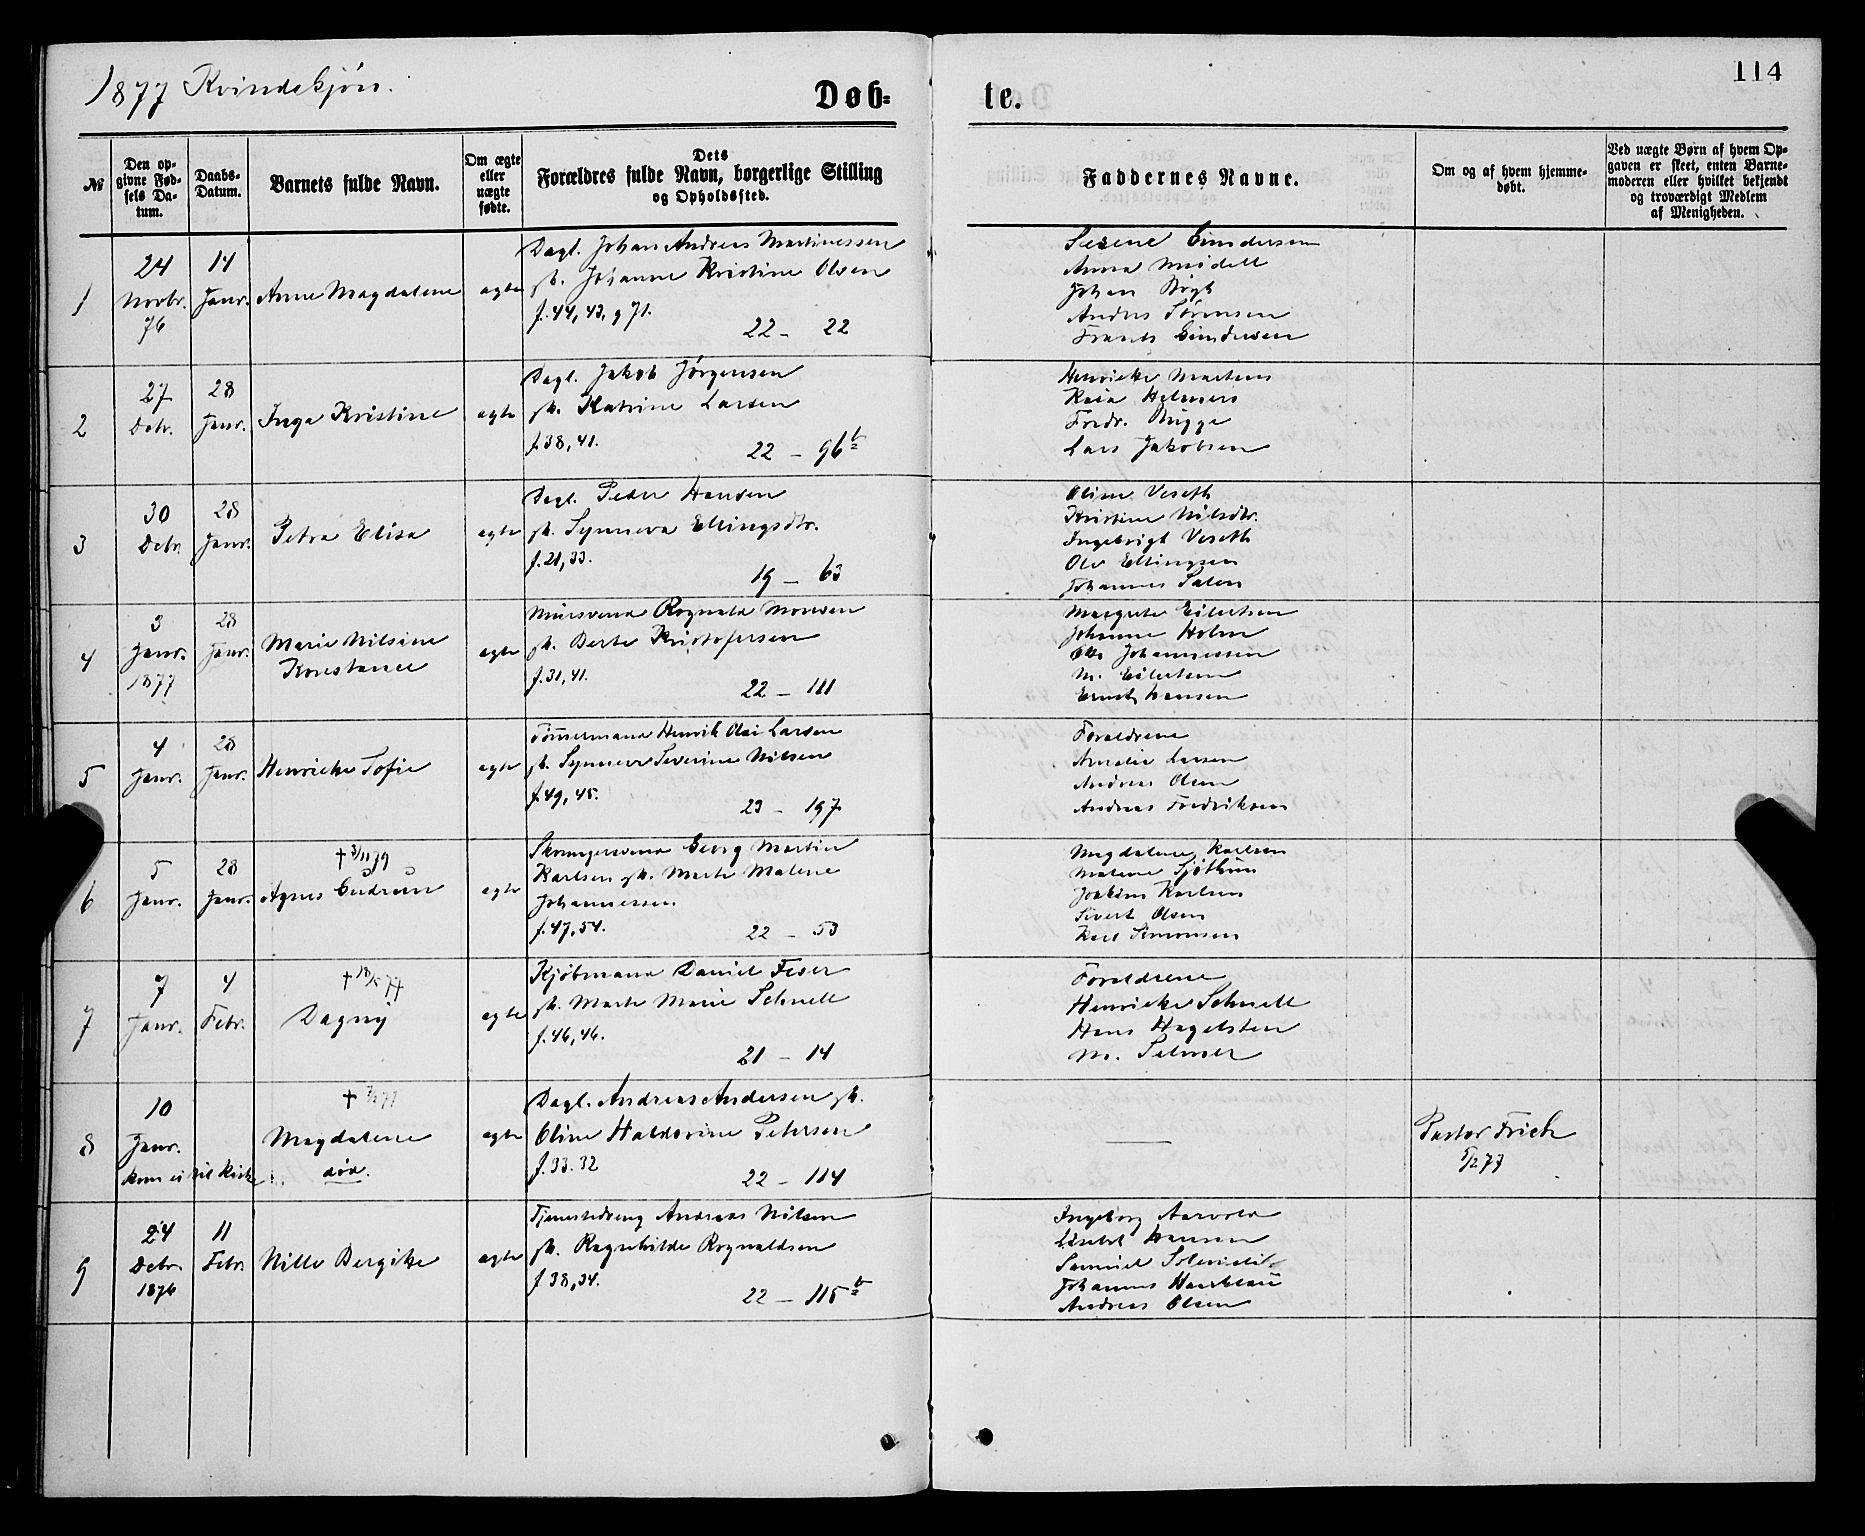 1877 Kvindekjøn.
Døb-
te.
114
№
Den op-
givne Fød-
sels Da-
tum.
Daabs-
Datum.
Barnets fulde Navn.
Om ægte
eller
uægte
fødte.
Dets
Forældres fulde Navn, borgerlige Stilling
og Opholdssted.
Faddernes Navne.
Om og af hvem hjemme-
døbt.
Ved uægte Børn af hvem Op-
gaven er skeet, enten Barne-
moderen eller hvilket bekjendt
og troværdigt Medlem
af Menigheden.
1
24
Novbr.
76
14
Janr.
Anne Magdalene
ægte
Dagl. Johan Andreas Martinessen
Johanne Kristine Olsen
f. 44, 43, g 71.
22 - 22
Gundersen
Anna
Johan
Anders Sørensen
Frants Gundersen
2
27
Debr.
28
Janr.
Inga Kristine
ægte
Dagl. Jakob Jørgensen
Katrine Larsen
f. 38, 41.
22 - 96 b
Henricke Martens
Kaia Helmers
Fredr. Brügge
Lars Jakobsen
3
30
Debr.
28
Janr.
Petra Elisa
ægte
Dagl. Peder Hansen
Synneva Ellingsdtr.
f. 21, 33.
19 - 63
Oline Veseth
Kristine Nilsdtr.
Ingebrigt Veseth
Ole Ellingsen
Johannes
4
3
Janr.
1877
28
Janr.
Marie Nilsine
Konstance
ægte
Mursvend Rognald Monsen
Berte Kristofersen
f. 31, 41.
22 - 111
Margrete Eilertsen
Johanne Holm
Johannessen
M. Eilertsen
Ernst Hansen
5
4
Janr.
28
Janr.
Henricke Sofie
ægte
Tømmermand Henrik Olai Larsen
Synneve Severine Nilsen
f. 49, 45.
23 - 197
Forældrene
Amalie Larsen
Andreas Olsen
Andreas Fredriksen
6
5
Janr.
28
Janr.
† 3/11 79
Agnes Gudrun
ægte
Georg Martin
Karlsen Marte Malene
Johannessen
f. 47, 54.
22 - 53
Magdalene Karlsen
Malene
Joakim Karlsen
Sivert Olsen
Karl Simonsen
7
7
Janr.
4
Febr.
Dagny
ægte
Kjøbmand Daniel Feser
Marte Marie Schnell
f. 46, 46.
21 - 14
Forældrene
Henricke Schnell
Hans Hagelsten
M.
8
10
Janr.
kom ei til Kirke
Magdalene
død.
ægte
Dagl. Andreas Andersen
Oline Haldorine Petersen
f. 33. 32
22 - 114
Pastor Frich
5/2 77
9
24
Debr.
1876
11
Febr.
Nille Bergitte
ægte
Tjenestedreng Andreas Nilsen
Ragnhilde Rognaldsen
f. 38, 34.
22 - 115 b
Ingeborg Aarvold
Lisebet Hansen
Samuel
Johannes
Andreas Olsen